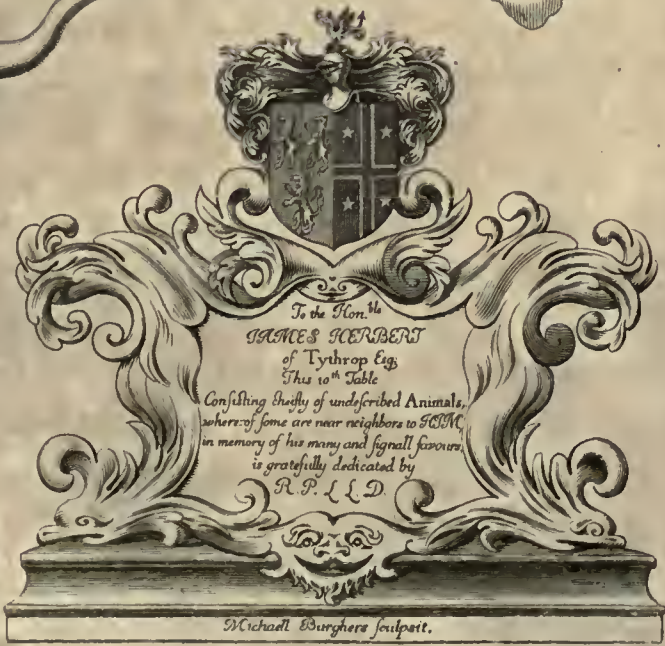 To the Hon.ble
IAMES HERBERT
of Tythrop Esq;
This 10th Table
Consisting cheifly of undescribed Animals,
where:of some are near neighbors to HIM,
in memory of his many and signall favours,
is gratefully dedicated by
R. P. L L. D.
Michaell Burghers sculpsit.